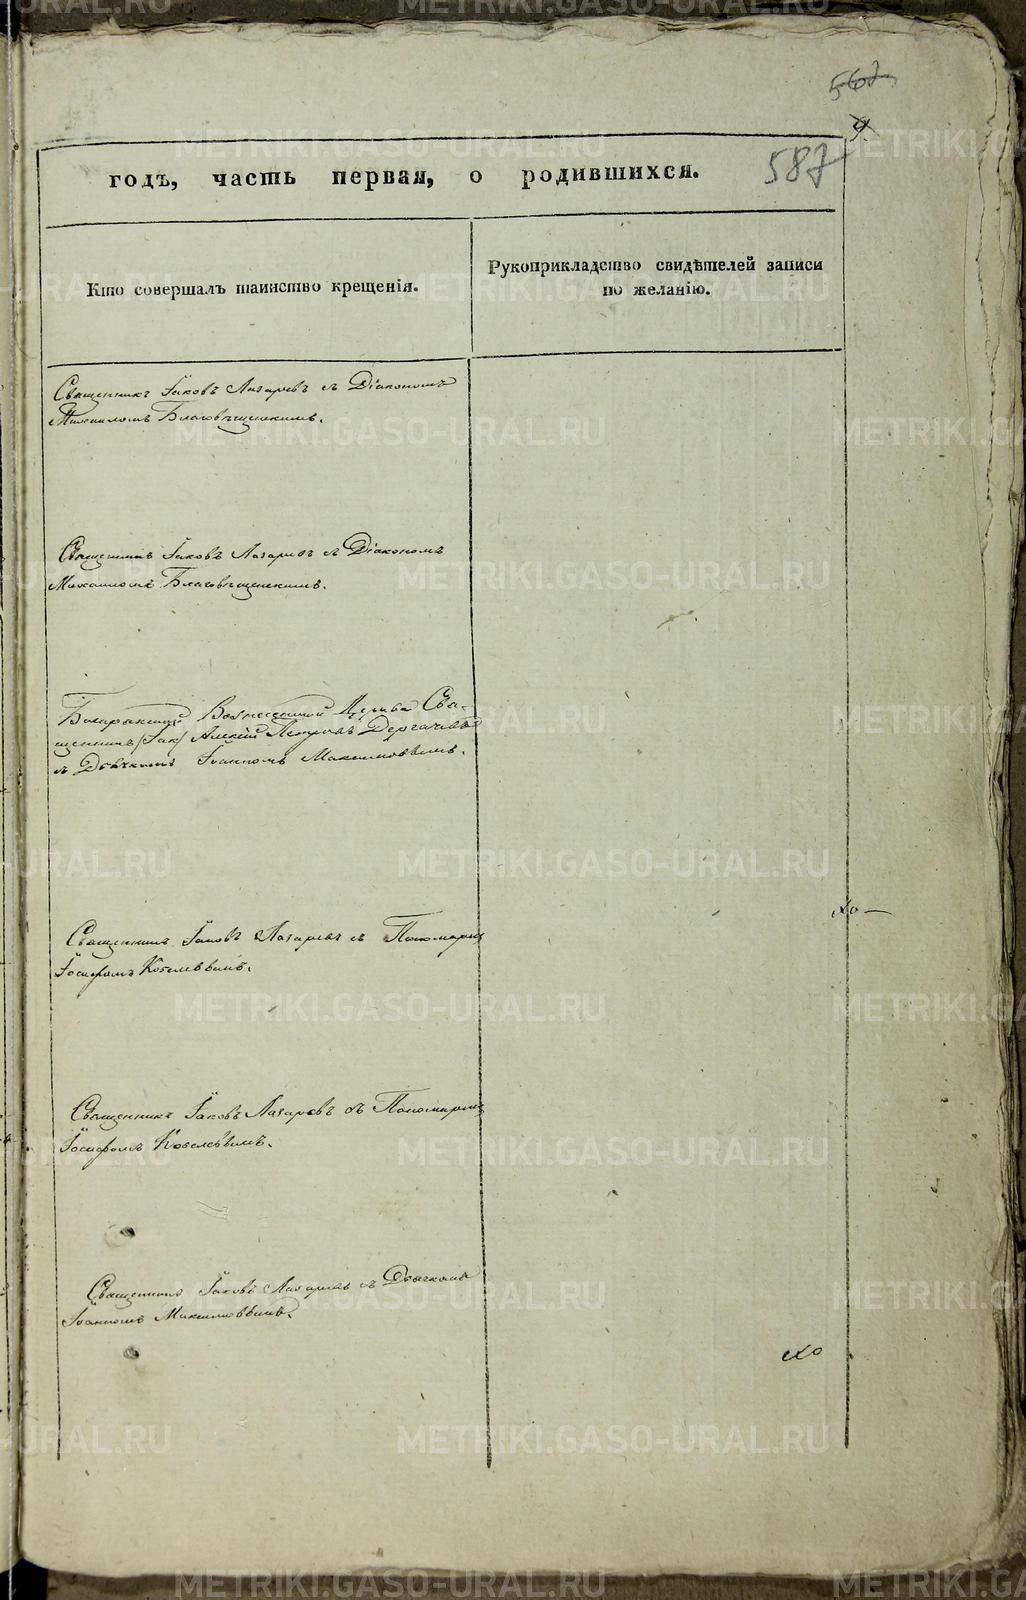 567
587
годъ, часть первая, о родившихся.
Кто совершалъ таинство крещенія.
Рукоприкладство свидѣтелей записи
по желанію.
Священникъ Іаковъ Лазаревъ съ Діакономъ
Михаиломъ Благовѣщенскимъ.
Священникъ Іаковъ Лазаревъ съ Діакономъ
Михаиломъ Благовѣщенскимъ.
Вознесенской Церкви Свя-
щенникъ Алексій Петровъ Дергачевъ
съ Дьячкомъ Іоанномъ Максимовымъ.
Священникъ Іаковъ Лазаревъ съ Пономаремъ
Іосифомъ Кобелевымъ.
Священникъ Іаковъ Лазаревъ съ Пономаремъ
Іосифомъ Кобелевымъ.
Священникъ Іаковъ Лазаревъ съ Дьячкомъ
Іоанномъ Максимовымъ.
METRIKI.GASO-URAL.RU